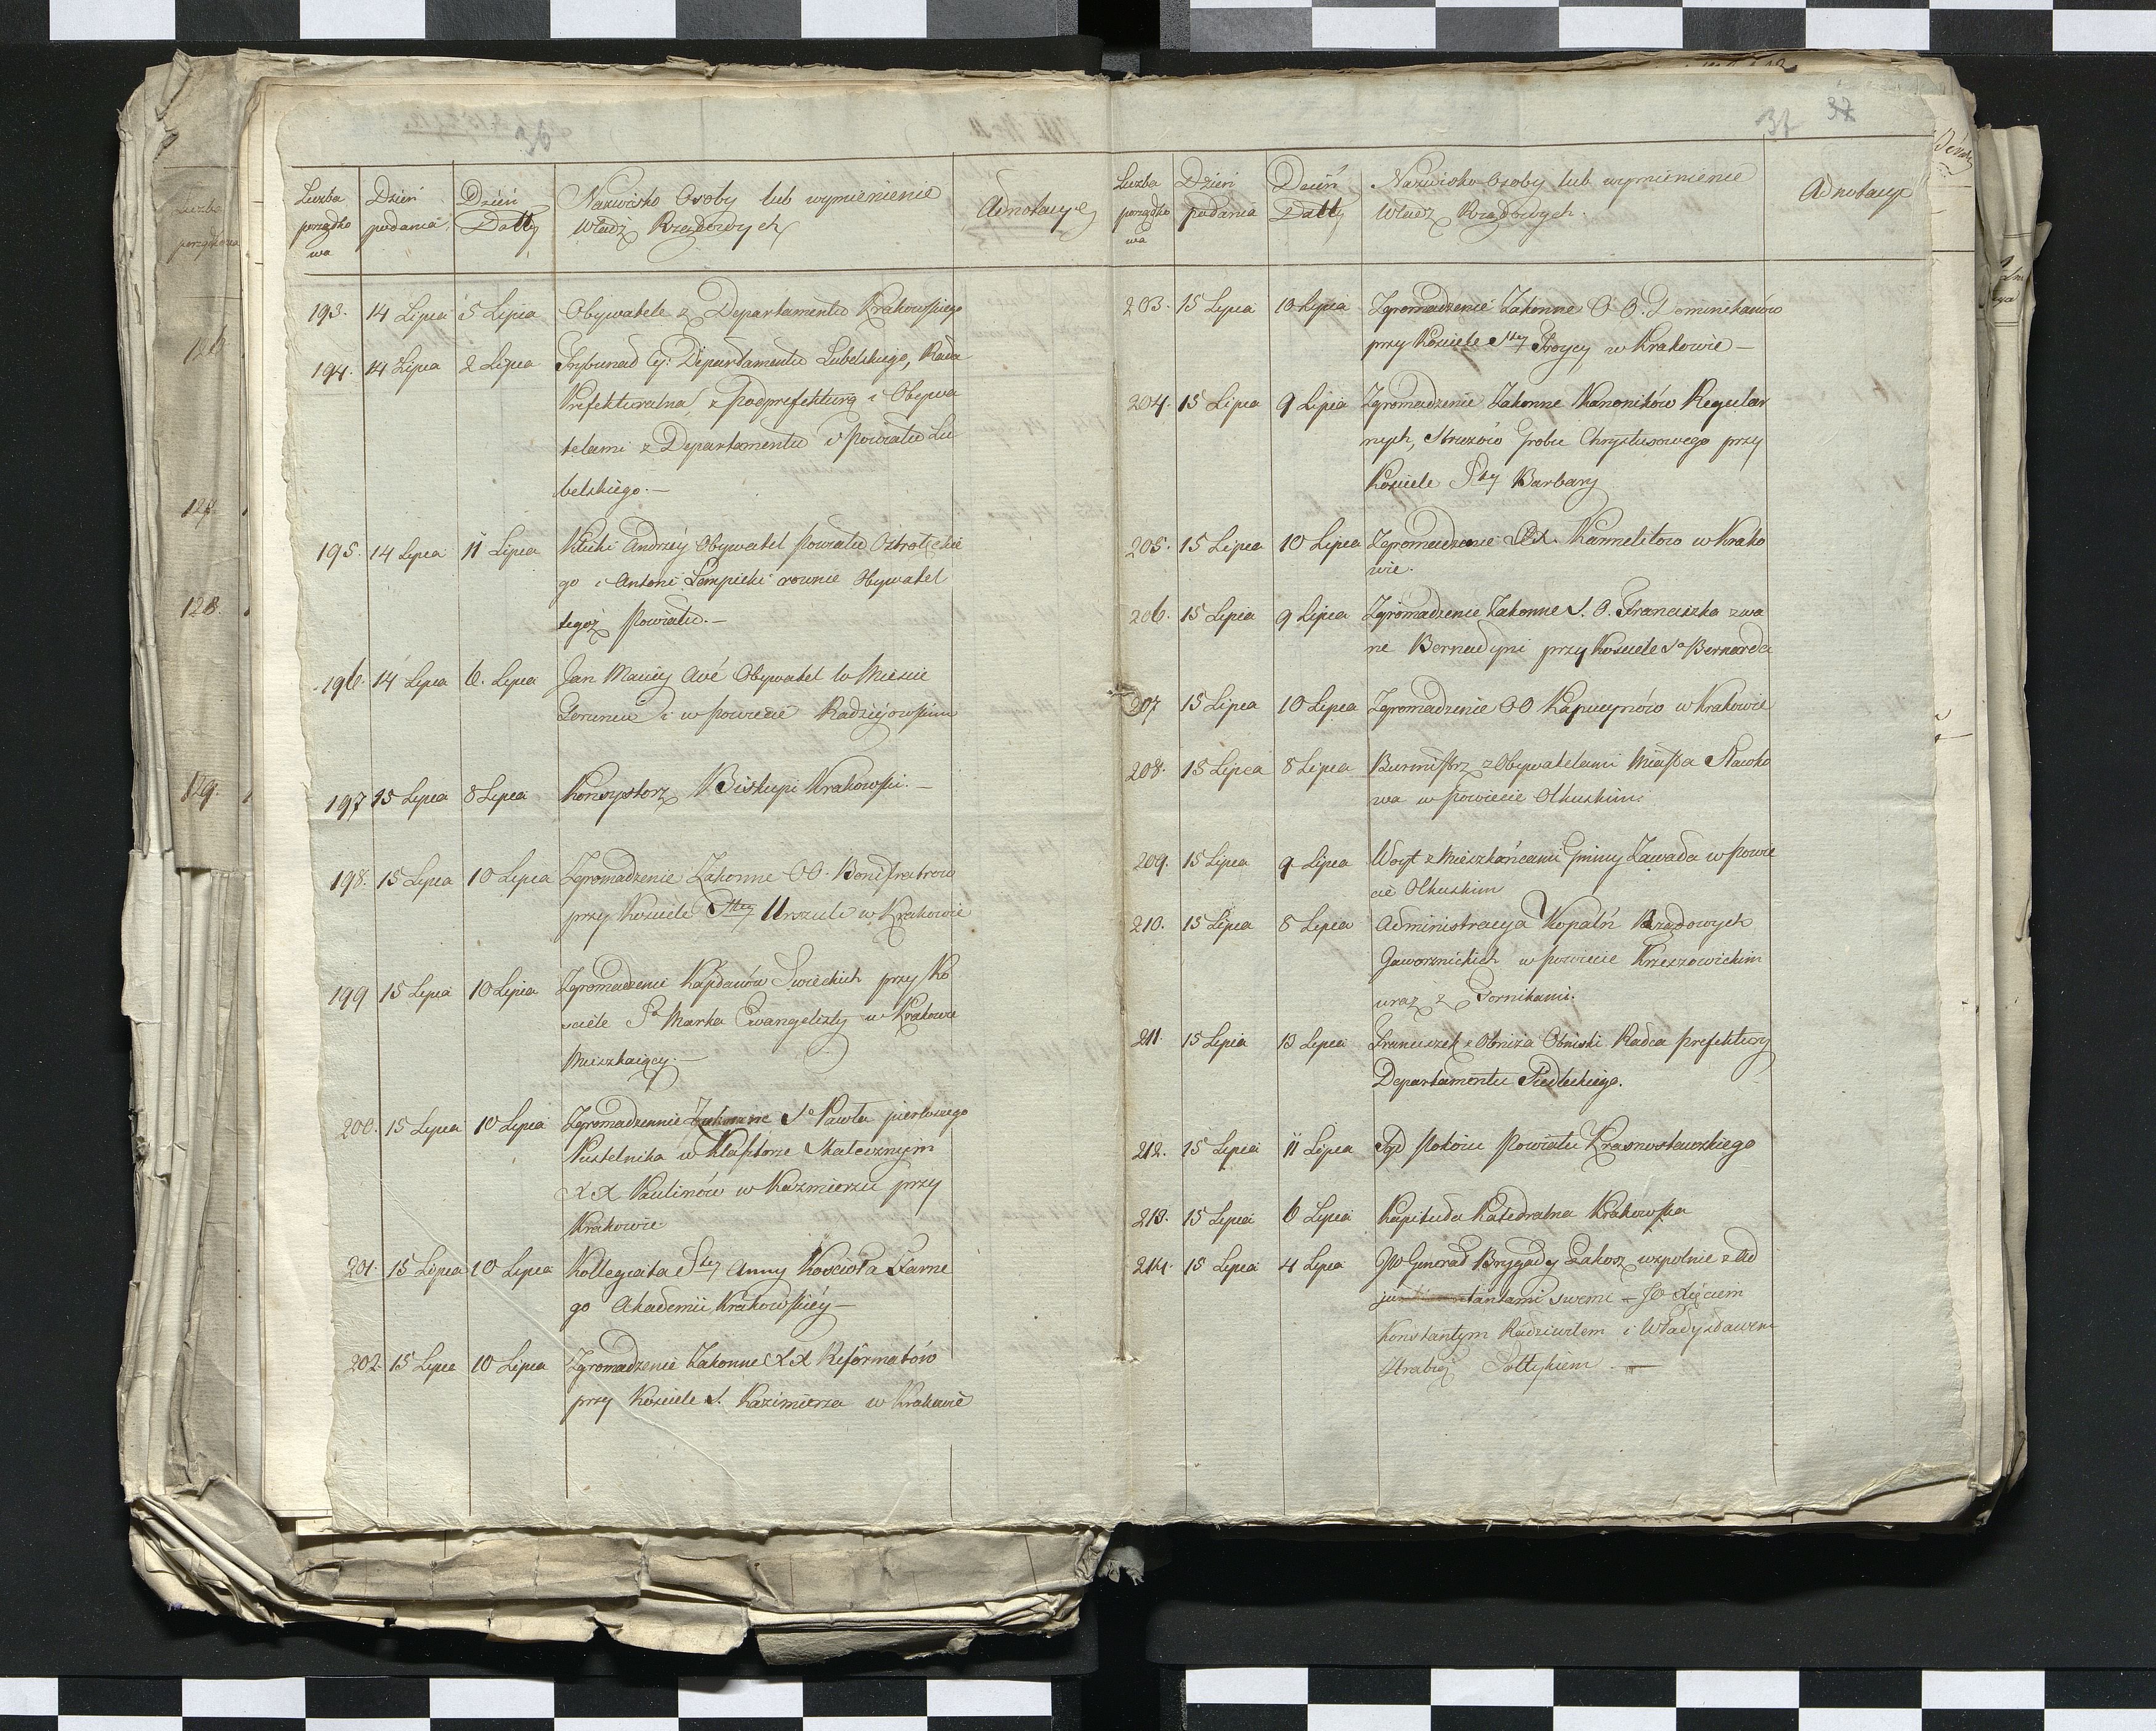 36
Liczba
porządko
wa
Dzień
podania
Dzień
Datty
Nazwisko Osoby lub wymienienie
Władz Rządowych
Adnotacye
193. 14 Lipca 5 Lipca Obywatele z Departamentu Krakowskiego
194. 14 Lipca 2 Lipca Trybunał Cy: Departamentu Lubelskiego, Rada
Prefekturalna, z Podprefekturą i Obywa
telami z Departamentu i Powiatu Lu
belskiego.—
195. 14 Lipca 11 Lipca Kłicki Andrzey Obywatel Powiatu Ostrołęckie
go i Antoni Lempicki rownie Obywatel
tegoż Powiatu.—
196. 14 Lipca 6. Lipca Jan Maciey Avé Obywatel w Miescie
Toruniu i w Powiecie Radzieiowskim
197 15 Lipca 8 Lipca Konsystorz Biskupi Krakowski.—
198. 15 Lipca 10 Lipca Zgromadzenie Zakonne OO. Bonifratrow
przy Kosciele Stey Urszuli w Krakowie
199 15 Lipca 10 Lipca Zgromadzenie Kapłanów Swieckich przy Ko
sciele So Marka Ewangelisty w Krakowie
Mieszkaiący.—
200. 15 Lipca 10 Lipca Zgromadzennie Zakonne So Pawła pierwszego
Pustelnika w Klasztorze Skałecznym
XX Paulinów w Kazmierzu przy
Krakowie
201. 15 Lipca 10 Lipca Kollegiata Stey Anny Kościoła Farne
go Akademii Krakowskiéy—
202. 15 Lipca 10 Lipca Zgromadzenie Zakonne XX Reformatów
przy Kosciele S. Kazimierza w Krakowie
37 37
Liczba
porządko
wa
Dzień
podania
Dzień
Datty
Nazwisko Osoby lub wymienienie
Władz Rządowych.
Adnotacye
203. 15 Lipca 10 Lipca Zgromadzenie Zakonne O O. Dominikanów
przy Kosciele Stey Troycy w Krakowie—
204. 15 Lipca 9 Lipca Zgromadzenie Zakonne Kanoników Regular
nych, Struzów Grobu Chrystusowego przy
Kosciele Stey Barbary
205. 15 Lipca 10 Lipca Zgromadzenie XX. Karmelitow w Krako
wie.
206. 15 Lipca 9 Lipca Zgromadzenie Zakonne S. O. Franciszka zwa
ne Bernadyni przy Kosciele So Bernarda
207 15 Lipca 10 Lipca Zgromadzenie OO Kapucynów w Krakowie
208. 15 Lipca 8 Lipca Burmistrz z Obywatelami Miasta Sławko
wa w Powiecie Olkuskim.
209. 15 Lipca 9 Lipca Woyt z Mieszkańcami Gminy Zawada w Powie
cie Olkuskim
210. 15 Lipca 8 Lipca Administracya Kopalń Rządowych
Jaworznickich w Powiecie Krzeszowickim
wraz z Gornikami.
211. 15 Lipca 13 Lipca Franciszek z Obniża Obniski Radca Prefektury
Departamentu Siedleckiego.
212. 15 Lipca 11 Lipca Sąd Pokoiu Powiatu Krasnostawskiego
213. 15 Lipca 6 Lipca Kapituła Katedralna Krakowska
214. 15 Lipca 4 Lipca JW Generał Brygady Żakosz wspolnie z Ad
jutantami swemi — JO Xięciem
Konstantym Radziwiłem i Władysławem
Hrabią Sołtykiem.—
Liczba
porządkowa
126.
127.
128.
129.